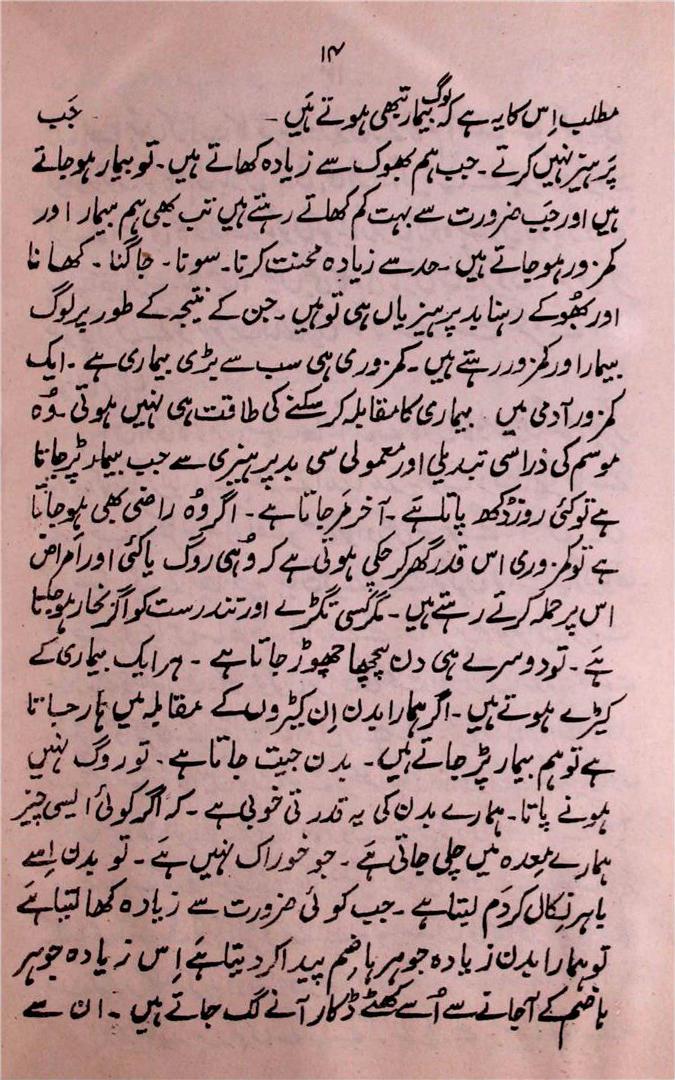 ۱۴
مطلب اِس کا یہ ہے کہ لوگ بیمار تبھی ہوتے ہَیں۔ جَب
پَرہیز نہیں کرتے۔ جب ہم بھوک سے زیادہ کھاتے ہیں۔ تو بیمار ہو جاتے
ہیں اور جَب ضرورت سے بہت کم کھاتے رہتے ہیں تب بھی ہم بیمار اور
کمزور ہو جاتے ہیں۔ حد سے زیادہ محنت کرنا۔ سونا۔ جاگنا۔ کھانا
اور بھُوکے رہنا بد پرہیزیاں ہی تو ہیں۔ جن کے نتیجہ کے طور پر لوگ
بیمار اور کمزور رہتے ہیں۔ کمزوری ہی سب سے بڑی بیماری ہے۔ ایک
کمزور آدمی میں بیماری کا مقابلہ کر سکنے کی طاقت ہی نہیں ہوتی۔ وُہ
موسم کی ذرا سی تبدیلی اور معمولی سی بد پرہیزی سے جب بیمار پڑ جاتا
ہے تو کئی روز دُکھ پاتا ہَے۔ آخر مَر جاتا ہے۔ اگر وُہ راضی بھی ہو جاتا
ہے تو کمزوری اس قدر گھر کر چکی ہوتی ہے کہ وُہی روگ یا کئی اور اَمراض
اس پر حملہ کرتے رہتے ہیں۔ مگر کسی تگڑے اور تندرست کو اگر بخار ہو جاتا
ہَے۔ تو دوسرے ہی دن پیچھا چھوڑ جاتا ہے۔ ہر ایک بیماری کے
کیڑے ہوتے ہیں۔ اگر ہمارا بدن اِن کیڑوں کے مقابلہ میں ہار جاتا
ہے تو ہم بیمار پڑ جاتے ہیں۔ بدن جیت جاتا ہے۔ تو روگ نہیں
ہونے پاتا۔ ہمارے بدن کی یہ قدرتی خوبی ہے۔ کہ اگر کوئی ایسی چیز
ہمارے مِعدہ میں چلی جاتی ہَے۔ جو خوراک نہیں ہَے۔ تو بدن اِسے
باہر نِکال کر دَم لیتا ہے۔ جب کوئی ضرورت سے زیادہ کھا لیتا ہَے
تو ہمارا بدن زیادہ جوہر ہاضِم پیدا کر دیتا ہَے اِس زیادہ جوہر
ہاضم کے آ جانے سے اُسے کھٹے ڈکار آنے لگ جاتے ہیں۔ ان سے